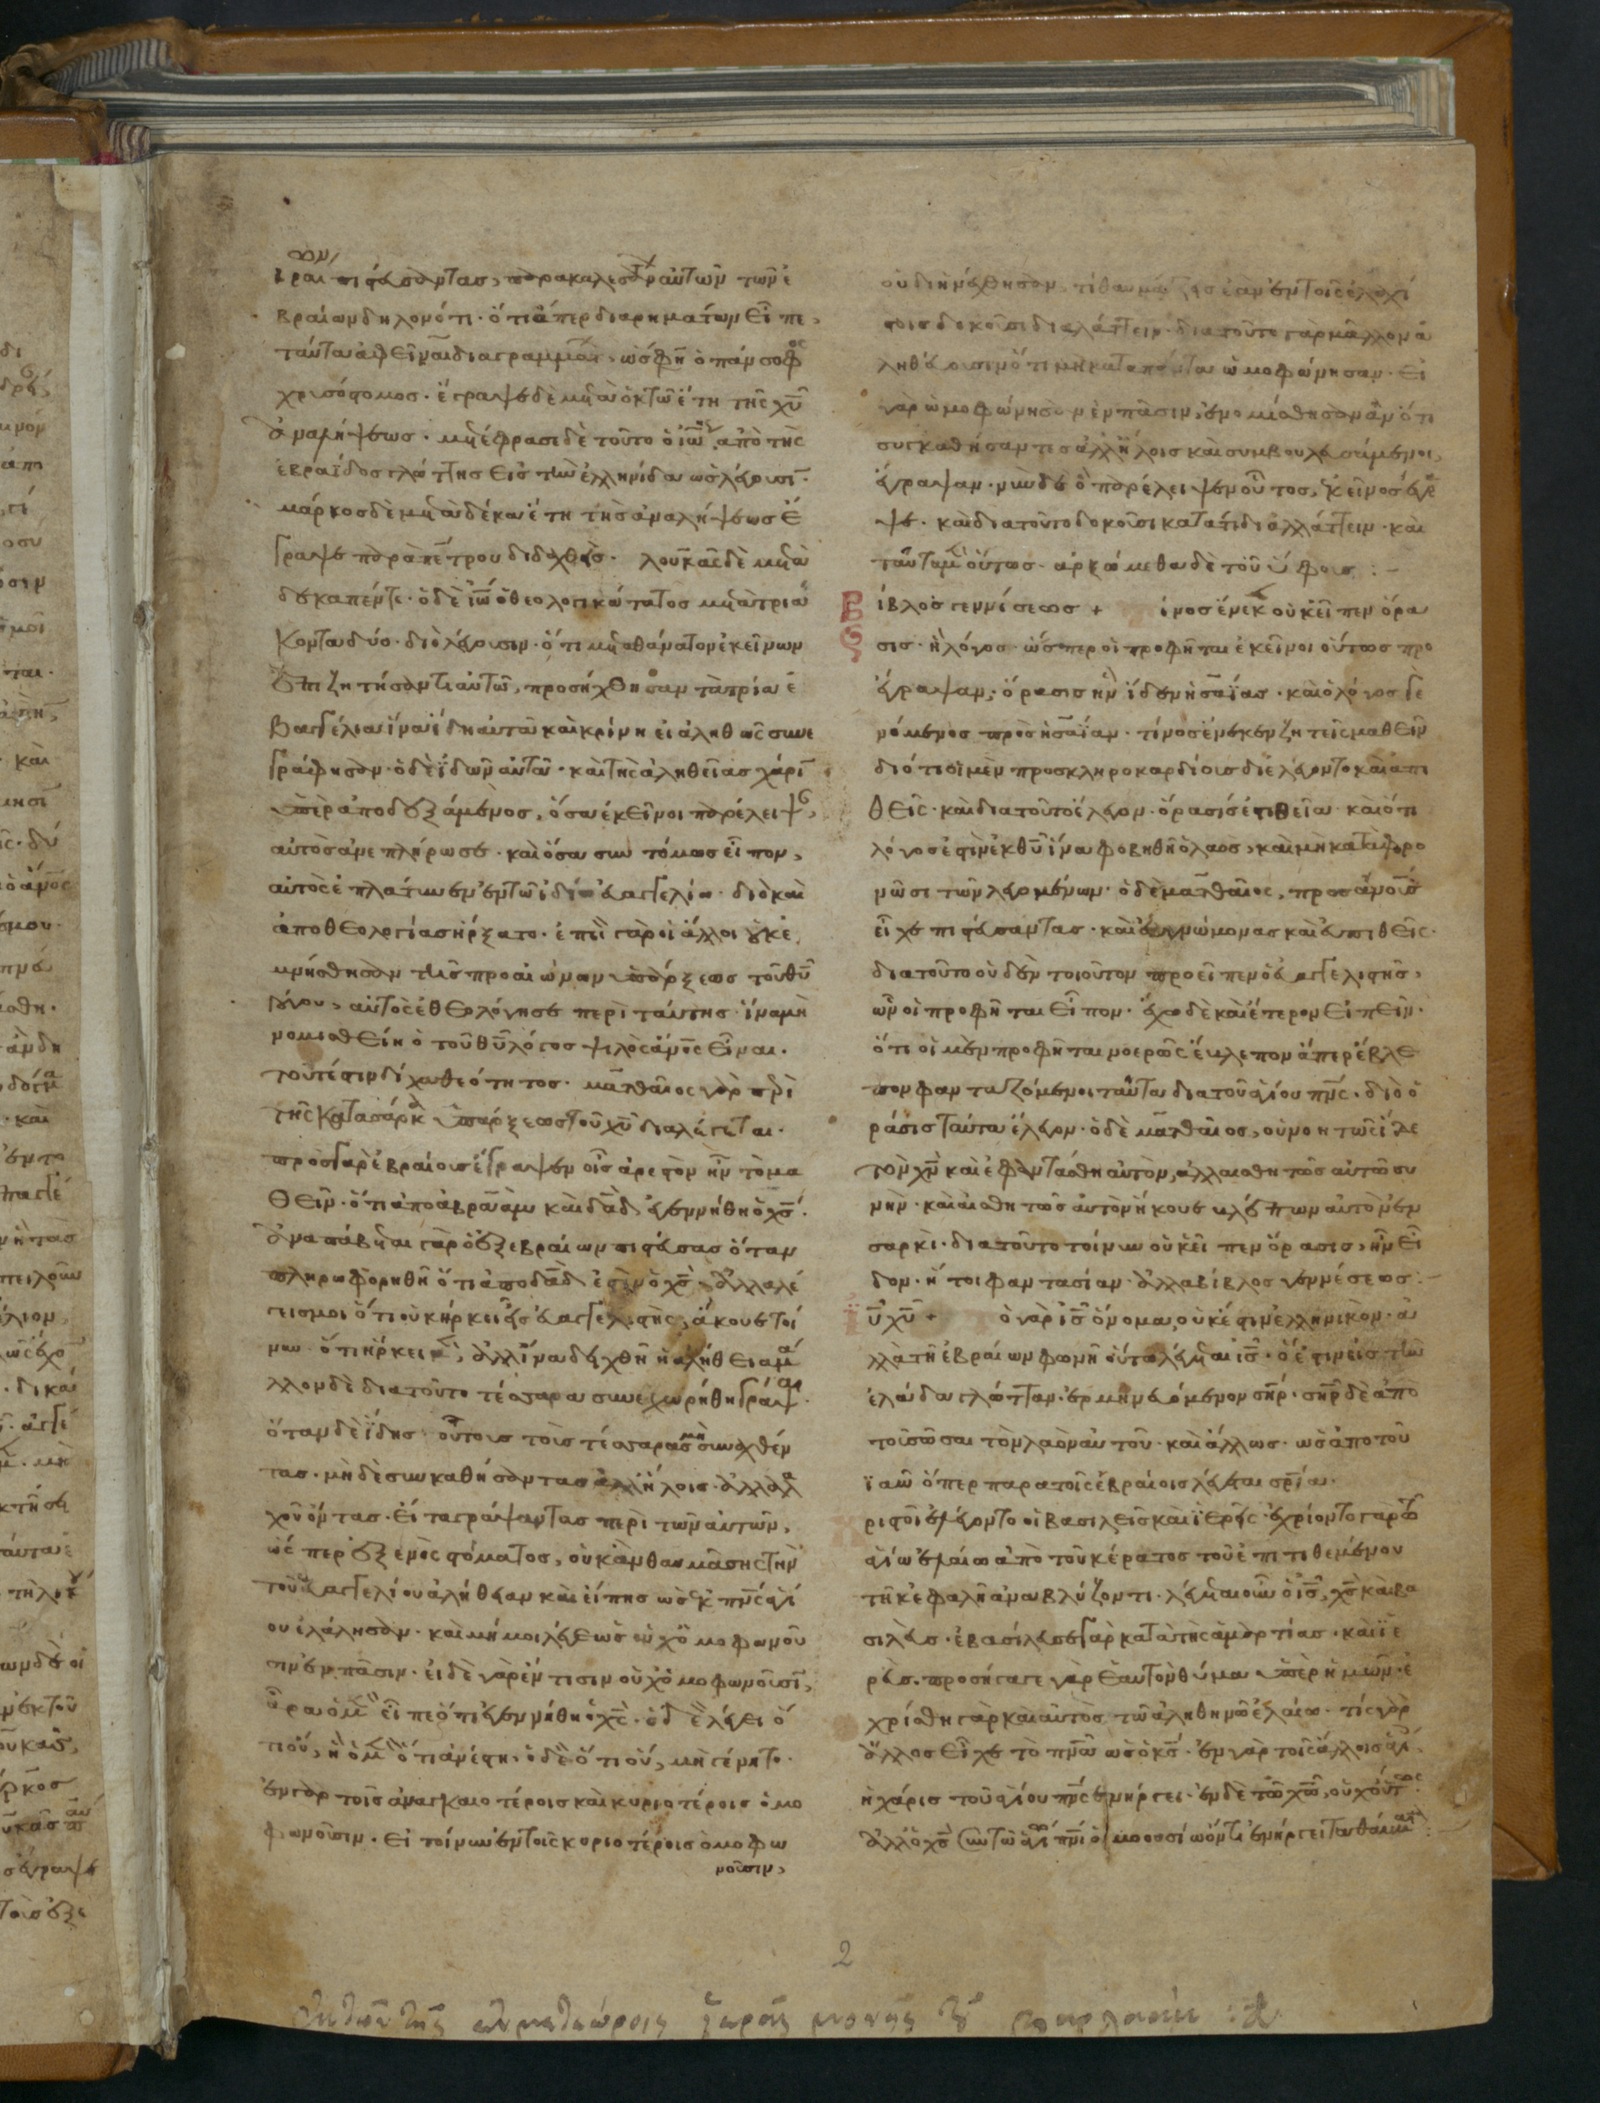 βραίων δηλονότι· ὅτι ἅπερ διὰ ῥημάτων εἶπε,
ταῦτα ἀφεῖναι διὰ γραμμάτ ὥς φη ὁ πάνσοφος
χρυσόστομος· ἔγραψε δὲ μετὰ ὀκτὼ ἔτη τῆς χῦ
ἀναλήψεως· μετέφρασε δὲ τοῦτο ὁ ἰω ἀπὸ τῆς
ἑβραΐδος γλώττης εἰς τὴν ἑλληνίδα ὡς λέγουσι·
μάρκος δὲ μετὰ δέκα ἔτη τῆς ἀναλήψεως ἔ
γραψε παρὰ πέτρου διδαχθείς· λουκᾶς δὲ μετὰ
δεκαπέντε· ὁ δὲ ἰω ὁ θεολογικώτατος μετὰ τριά
κοντα δύο· διὸ λέγουσιν· ὅτι μετὰ θάνατον ἐκείνων
ἐπιζητήσαντι αὐτῶ, προσήχθησαν τὰ τρία ἐ
βαγγέλια ἵνα ἴδη αὐτὰ καὶ κρίνη εἰ ἀληθῶς συνε
γράφησαν· ὁ δὲ ἰδὼν αὐτὰ· καὶ τῆς ἀληθείας χάριν
ὑπεραποδεξάμενος, ὅσα ἐκεῖνοι παρέλειψ,
αὐτὸς ἀνεπλήρωσε· καὶ ὅσα συντόμως εἶπον,
αὐτὸς ἐπλάτυνεν ἐν τῶ ἰδίω εὐαγγελίω· διὸ καὶ
ἀπὸ θεολογίας ἤρξατο· ἐπεὶ γὰρ οἱ ἄλλοι οὐκ ἐ
μνήσθησαν τῆς πρὸ αἰώνων ὑπάρξεως τοῦ θῦ
λόγου, αὐτὸς ἐθεολόγησε περὶ ταύτης· ἵνα μὴ
νομισθείη ὁ τοῦ θῦ λόγος ψιλὸς ἄνος εἶναι·
τουτέστιν δίχα θεότητος· ματθαῖος γὰρ περὶ
τῆς κατὰ σάρκ ὑπάρξεως τοῦ χῦ διαλέγεται·
πρὸς γὰρ ἑβραίους ἔγραψεν οἷς ἀρεστὸν ἦν τὸ μα
θεῖν· ὅτι ἀπὸ ἀβραὰμ καὶ δαδ ἐγεννήθη ὁ χς·
ἀναπαύεται γὰρ ὁ ἐξ ἑβραίων πιστεύσας ὅταν
πληροφορηθῆ ὅτι ἀπὸ δαδ ἐστὶν ὁ χς· ἀλλὰ λέ
γεις μοι ὅτι οὐκ ἤρκει εἷς εὐαγγελιστής, ἄκουε τοί
νυν· ὅτι ἤρκει μ, ἀλλ' ἵνα δειχθῆ ἡ ἀλήθεια μᾶ
λλον δὲ διὰ τοῦτο τέσσαρα συνεχωρήθη γράψ·
ὅταν δὲ ἴδης τούτους τοὺς τέσσαρας μὴ συναχθέν
τας· μὴ δὲ συγκαθήσαντας ἀλλήλοις· ἀλλ' ἀλλα
χοῦ ὄντας· εἶτα γράψαντας περὶ τῶν αὐτῶν,
ὥσπερ ἐξ ἑνὸς στόματος, οὐκ ἂν θαυμάσης τὴν
τοῦ εὐαγγελίου ἀλήθειαν καὶ εἴπης ὡς ἐκ πνς ἁγί
ου ἐλάλησαν· καὶ μή μοι λέγε ὡς οὐχ ὁμοφωνοῦ
σιν ἐν πᾶσιν· εἰ δὲ γὰρ ἔν τισιν οὐχ ὁμοφωνοῦσι,
ἆρα ὁ μ εἶπε ὅτι ἐγεννήθη ὁ χς· ὁ δὲ λέγει ὅ
τι οὔ, ἢ ὁ μ ὅτι ἀνέστη· ὁ δὲ ὅτι οὔ, μὴ γένητο·
ἐν γὰρ τοῖς ἀναγκαιοτέροις καὶ κυριωτέροις ὁμο
φωνοῦσιν· εἰ τοίνυν ἐν τοῖς κυριωτέροις ὁμοφω
νοῦσιν,
οὐ διηνέχθησαν, τί θαυμάζεις ἐὰν ἐν τοῖς ἐλαχί
στοις δοκοῦσι διαλάττειν· διὰ τοῦτο γὰρ μᾶλλον ἀ
ληθεύουσιν ὅτι μὴ κατὰ πάντα ὡμοφώνησαν· εἰ
γὰρ ὡμοφώνησαν ἐν πᾶσιν, ἐνομίσθησαν ἂν ὅτι
συγκαθήσαντες ἀλλήλοις καὶ συμβουλευσάμενοι,
ἔγραψαν· νῦν δὲ ὃ παρέλειψεν οὗτος, ἐκεῖνος ἔγρα
ψε· καὶ διὰ τοῦτο δοκοῦσι κατά τι διαλλάττειν· καὶ
ταῦτα μ οὕτως· ἀρξώμεθα δὲ τοῦ ὕφους :–
Βίβλος γεννήσεως + τίνος ἕνεκ οὐκ εἶπεν ὅρα
σις· ἢ λόγος· ὥσπερ οἱ προφῆται ἐκεῖνοι οὕτως προ
έγραψαν· ὅρασις ἣν ἴδεν ἠσαΐας· καὶ ὁ λόγος γε
νόμενος πρὸς ἠσαΐαν· τίνος ἕνεκεν ζητεῖς μαθεῖν
διότι οἱ μὲν προσκληροκαρδίοις διελέγοντο καὶ ἀπι
θεῖς· καὶ διὰ τοῦτο ἔλεγον· ὅρασίς ἐστι θεία καὶ ὅτι
λόγος ἐστὶν ἐκ θῦ ἵνα φοβηθῆ ὁ λαὸς, καὶ μὴ καταφρο
νῶσι τῶν λεγομένων· ὁ δὲ ματθαῖος, πρὸς ἀνους
εἶχε πιστεύσαντας· καὶ εὐγνώμονας καὶ εὐπιθεῖς·
διὰ τοῦτο οὐδὲν τοιοῦτον προεῖπεν ὁ εὐαγγελιστής,
ὧν οἱ προφῆται εἶπον· ἔχω δὲ καὶ ἕτερον εἰπεῖν·
ὅτι οἱ μὲν προφῆται νοερῶς ἔβλεπον ἅπερ ἔβλε
πον φανταζόμενοι ταῦτα διὰ τοῦ ἁγίου πνς· διὸ ὁ
ράσις ταῦτα ἔλεγον· ὁ δὲ ματθαῖος, οὐ νοητῶς ἴδε
τὸν χν καὶ ἐφαντάσθη αὐτόν, ἀλλ' αἰσθητῶς αὐτῶ συ
νῆν· καὶ αἰσθητῶς αὐτὸν ἤκουε βλέπων αὐτὸν ἐν
σαρκί· διὰ τοῦτο τοίνυν οὐκ εἶπεν ὅρασις, ἣν εἶ
δον· ἤτοι φαντασίαν· ἀλλὰ βίβλος γεννέσεως :–
ϊῦ χῦ + ὁ γὰρ ις ὄνομα, οὐκ ἔστιν ἑλληνικὸν· ἀ
λλὰ τῆ ἑβραίων φωνῆ οὕτω λέγεται ις· ὅ ἐστιν εἰς τὴν
ἑλάδα γλῶτταν· ἑρμηνευόμενον σηρ· σηρ δὲ ἀπὸ
τοῦ σῶσαι τὸν λαὸν αὐτοῦ· καὶ ἄλλως· ὡς ἀπὸ τοῦ
ϊαω ὅπερ παρὰ τοῖς ἑβραίοις λέγεται σρία·
χριστοὶ ἐλέγοντο οἱ βασιλεῖς καὶ ἱερεῖς· ἐχρίοντο γὰρ τῶ
ἁγίω ἐλαίω ἀπὸ τοῦ κέρατος τοῦ ἐπιτιθεμένου
τῆ κεφαλῆ ἀναβλύζοντι· λέγεται οὖν ὁ ις, χς καὶ βα
σιλεύς· ἐβασίλευσε γὰρ κατὰ τῆς ἁμαρτίας· καὶ ἱε
ρεύς· προσήγαγε γὰρ ἑαυτὸν θύμα ὑπὲρ ἡμῶν· ἐ
χρίσθη γὰρ καὶ αὐτὸς τῶ ἀληθηνῶ ἐλαίω· τίς γὰρ
ἄλλος εἶχε τὸ πνα ὡς ὁ κς· ἐν γὰρ τοῖς ἄλλοις ἁγί
ἡ χάρις τοῦ ἁγίου πνς ἐνήργει· ἐν δὲ τῶ χω, οὐχ οὕτως·
ἀλλ' ὁ χς σὺν τῶ ἁγίω πνι ὁμοουσίω ὄντι ἐνήργει τὰ θαύματ :–
2